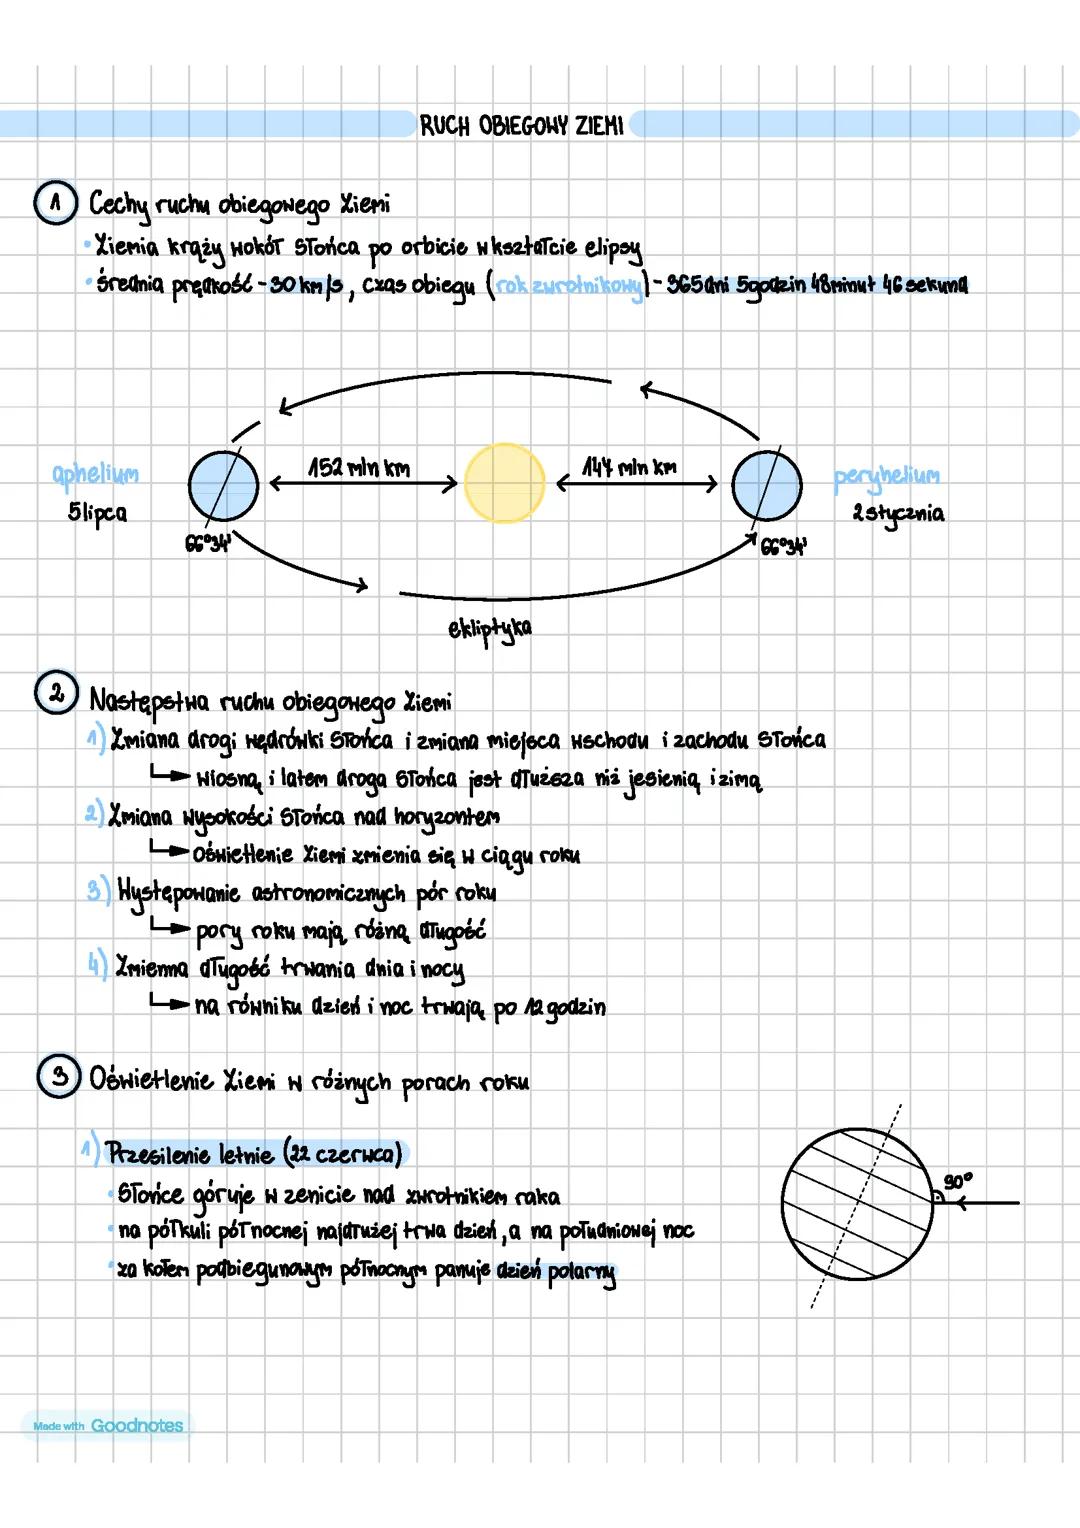 RUCH OBIEGOWY ZIEMI
1 Cechy ruchu obiegowego Ziemi
• Ziemia krąży wokół Słońca po orbicie w kształcie elipsy
• średnia prędkość - 30 km/s, czas obiegu (rok zwrotnikowy) - 365 dni 5 godzin 48 minut 46 sekund
152 mln km
147 mln km
aphelium
peryhelium
5 lipca
2 stycznia
66°34'
66°34'
ekliptyka
2 Następstwa ruchu obiegowego Ziemi
1) Zmiana drogi wędrówki Słońca i zmiana miejsca wschodu i zachodu Słońca
↳ wiosną i latem droga Słońca jest dłuższa niż jesienią i zimą
2) Zmiana wysokości Słońca nad horyzontem
↳ oświetlenie Ziemi zmienia się w ciągu roku
3) Występowanie astronomicznych pór roku
↳ pory roku mają różną długość
4) Zmienna długość trwania dnia i nocy
↳ na równiku dzień i noc trwają po 12 godzin
3 Oświetlenie Ziemi w różnych porach roku
1) Przesilenie letnie (22 czerwca)
• Słońce góruje w zenicie nad zwrotnikiem raka
• na półkuli północnej najdłużej trwa dzień, a na południowej noc
• za kołem podbiegunowym północnym panuje dzień polarny
90°
Made with Goodnotes